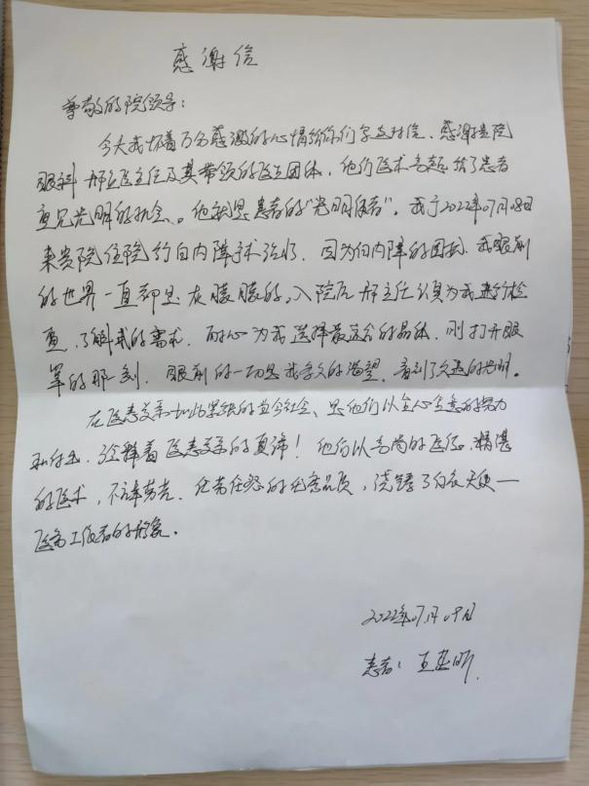 感谢信
尊敬的院领导：
今天我怀着万分感激的心情给你们写这封信、感谢贵院
眼科 邢主任及其带领的医生团体，他们医术高超给了患者
重见光明的机会、。他就是患者的“光明使者”。我于2022年07月08日
来贵院住院行白内障手术治疗．因为白内障的困扰．我眼前
的世界一直都是灰朦朦的，入院后邢主任认真为我进行检
查，了解我的需求．耐心为我选择最适合的晶体．刚打开眼
罩的那刻．眼前的一切是我多久的渴望．看到了久违的光明。
在医患关系如此紧张的当今社会、是他们以全心全意的努力
和付出．诠释着医患关系的真谛！他们以高尚的医德、精湛
的医术，不辞劳苦．任劳任怨的优秀品质，浇铸了白衣天使一
医务工作者的形象。
2022年07月09日
患者：王